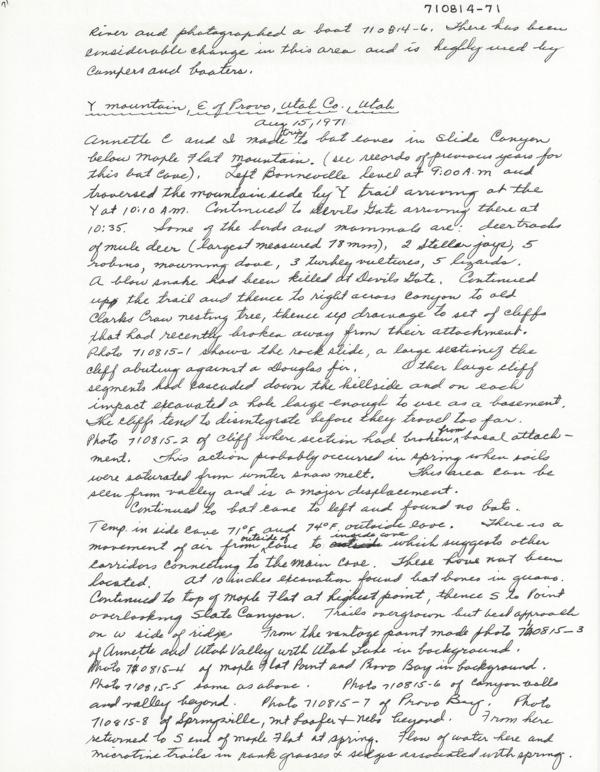 710814-71
River and photographed a boat 710814-6. There has been
considerable change in this area and is highly used by
campers and boaters.
Y mountain, E of Provo, Utah Co., Utah
Aug 15, 1971
Annette C and I made trip to bat caves in Slide Canyon
below Maple Flat Mountain. (see records of previous years for
this bat cave). Left Bonneville level at 9:00 A.M and
traversed the mountain side by Y trail arriving at the
Y at 10:10 A.M. Continued to Devils Gate arriving there at
10:35. Some of the birds and mammals are: deer tracks
of mule deer (largest measured 78 mm), 2 Stellar jays, 5
robins, mourning dove, 3 turkey vultures, 5 lizards.
A blow snake had been killed at Devils Gate. Continued
up the trail and thence to right across canyon to old
Clarks Craw nesting tree, thence up drainage to set of cliffs
that had recently broken away from their attachment.
Photo 710815-1 shows the rock slide, a large section of the
cliff abuting against a Douglas fir. Other large cliff
segments had cascaded down the hillside and on each
impact excavated a hole large enough to use as a basement.
The cliffs tend to disintegrate before they travel too far.
Photo 710815-2 of cliff where section had broken from basal attach-
ment. This action probably occurred in spring when soils
were saturated from winter snow melt. This area can be
seen from valley and is a major displacement.
Continued to bat cave to left and found no bats.
Temp. in side cave 71°F. and 74°F. outside cave. There is a
movement of air from outside of cave to inside cave which suggests other
corridors connecting to the main cave. These have not been
located. At 10 inches excavation found bat bones in guano.
Continued to top of Maple Flat at highest point, thence S to Point
overlooking Slate Canyon. Trails overgrown but best approach
on W side of ridge. From the vantage point made photo 710815-3
of Annette and Utah Valley with Utah Lake in background.
Photo 710815-4 of Maple Flat Point and Provo Bay in background.
Photo 710815-5 same as above. Photo 710815-6 of canyon walls
and valley beyond. Photo 710815-7 of Provo Bay. Photo
710815-8 of Springville, Mt Loafer & Nebo beyond. From here
returned to S end of Maple Flat at spring. Flow of water here and
microtine trails in rank grasses & sedges associated with spring.